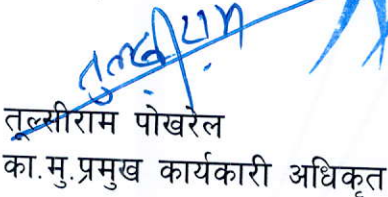 तुलसीराम
तूल्सीराम पोखरेल
का.मु.प्रमुख कार्यकारी अधिकृत